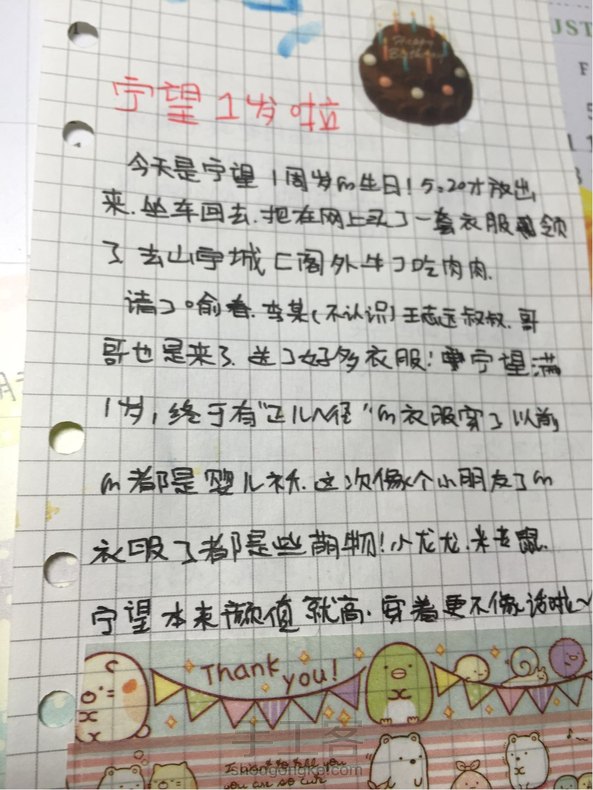 JST
F
Happy
Birthday
宁望1岁啦
今天是宁望1周岁m生日！5.20才放出
来.坐车回去.把在网上买了一套衣服领
了去山宁城亡阁外牛了吃肉肉.
请了 李某(不认识)王志远叔叔.哥
哥也是来了.送了好多衣服！宁望满
1岁，终于有"正儿八经"m衣服穿了以前
m都是婴儿衫.这次像个小朋友了m
衣服了都是些萌物！小龙龙.米老鼠.
宁望本来颜值就高.穿着更不像话啦~
Thank you!
I want to tell you
you are so cute
手工客
shougongke.com